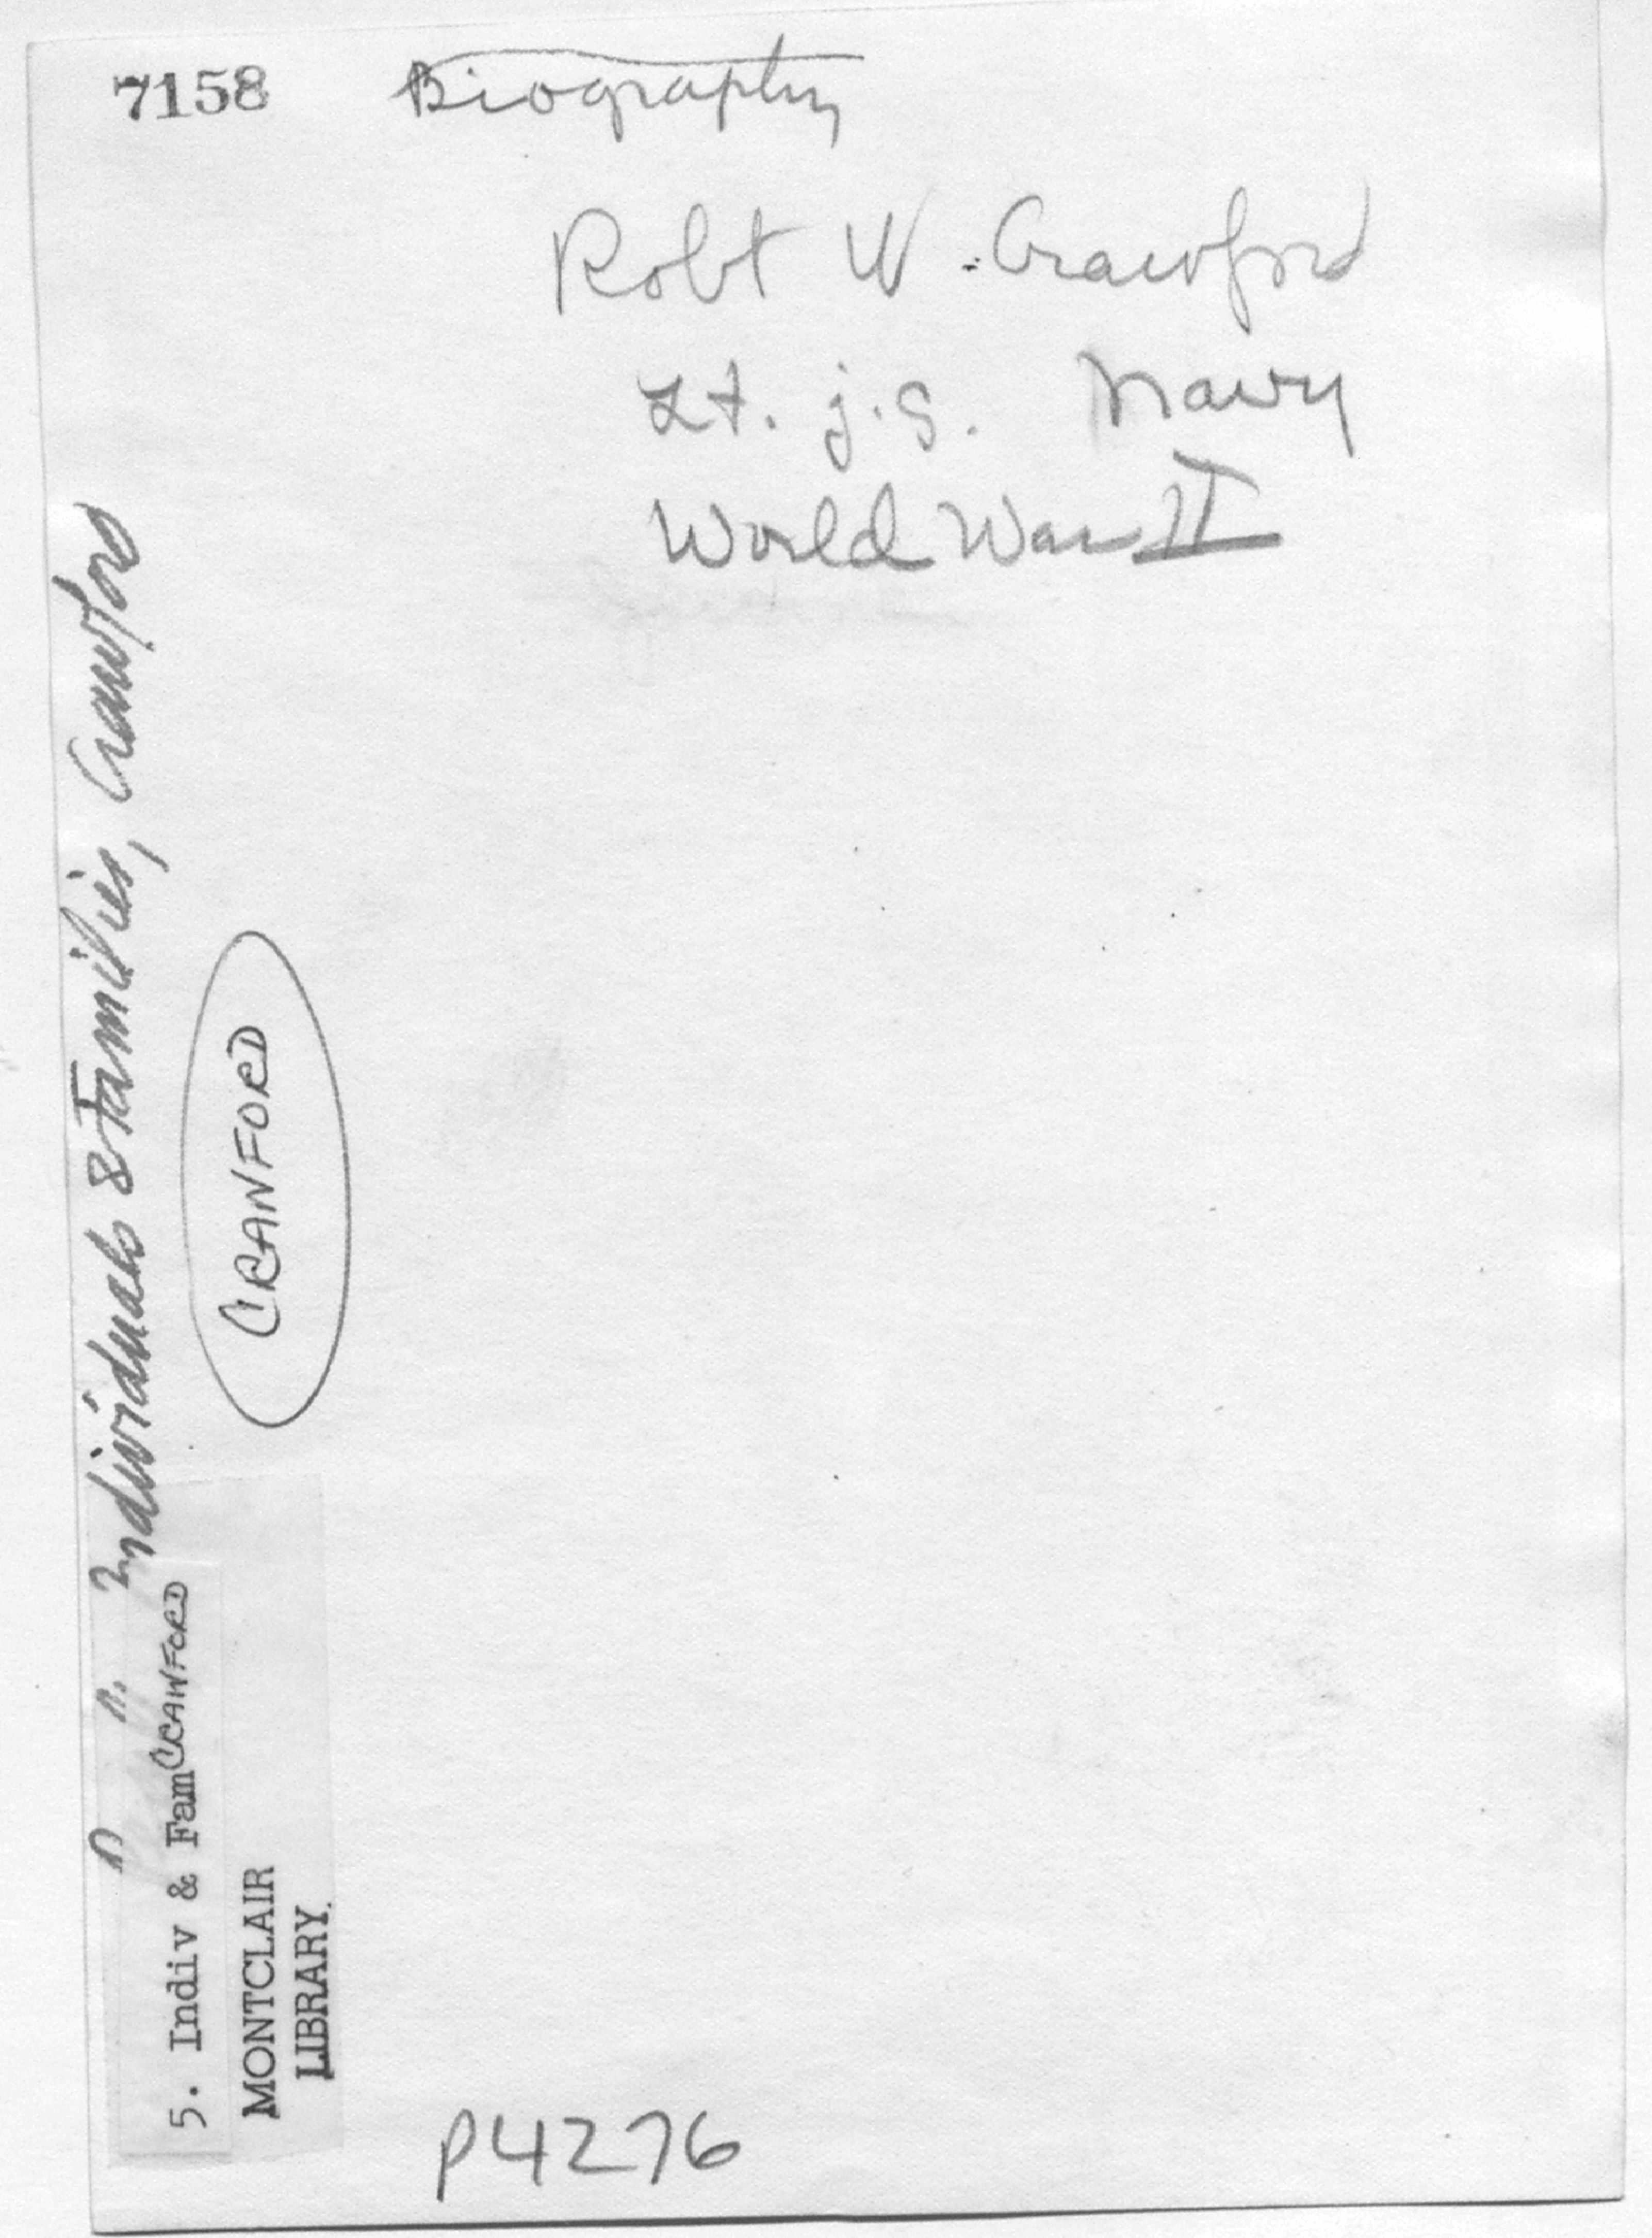 7158 Biography
Robt W. Crawford
Lt. j.g. Navy
World War II
Individuals & Families, Crawford
CRANFORD
5. Indiv & Fam CRAWFORD
MONTCLAIR
LIBRARY.
P4276